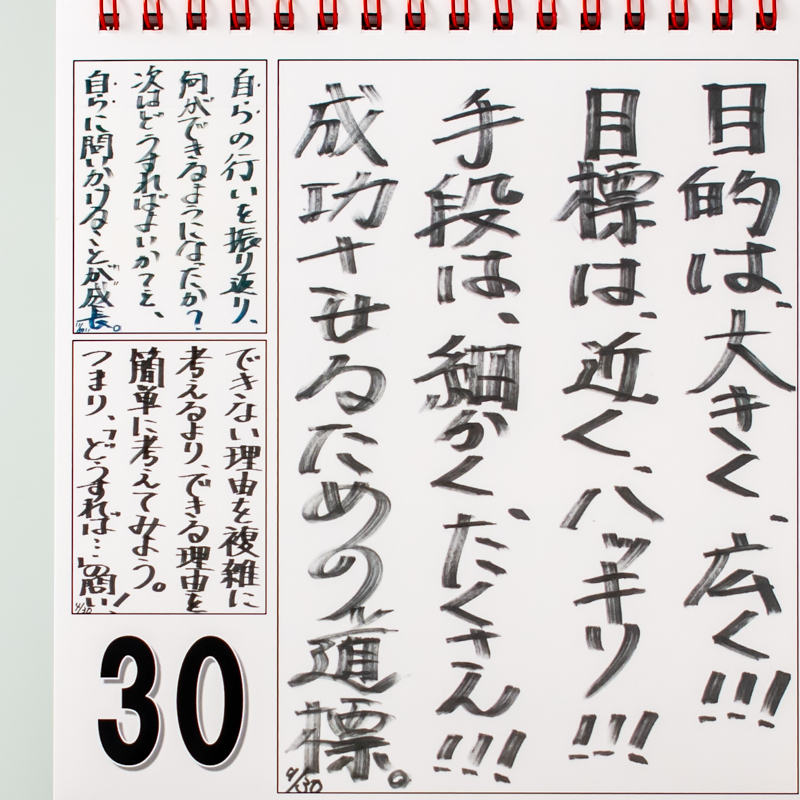 目的は、大きく、広く!!!
目標は、近く、ハッキリ!!!
手段は、細かく、たくさん!!!
成功させるための道標。
4/30
自らの行いを振り返り、
何ができるようになったか?
次はどうすればよいか?を、
自らに問いかけることが成長。
できない理由を複雑に
考えるより、できる理由を
簡単に考えてみよう。
つまり、「どうすれば…」の問い!
4/30
30